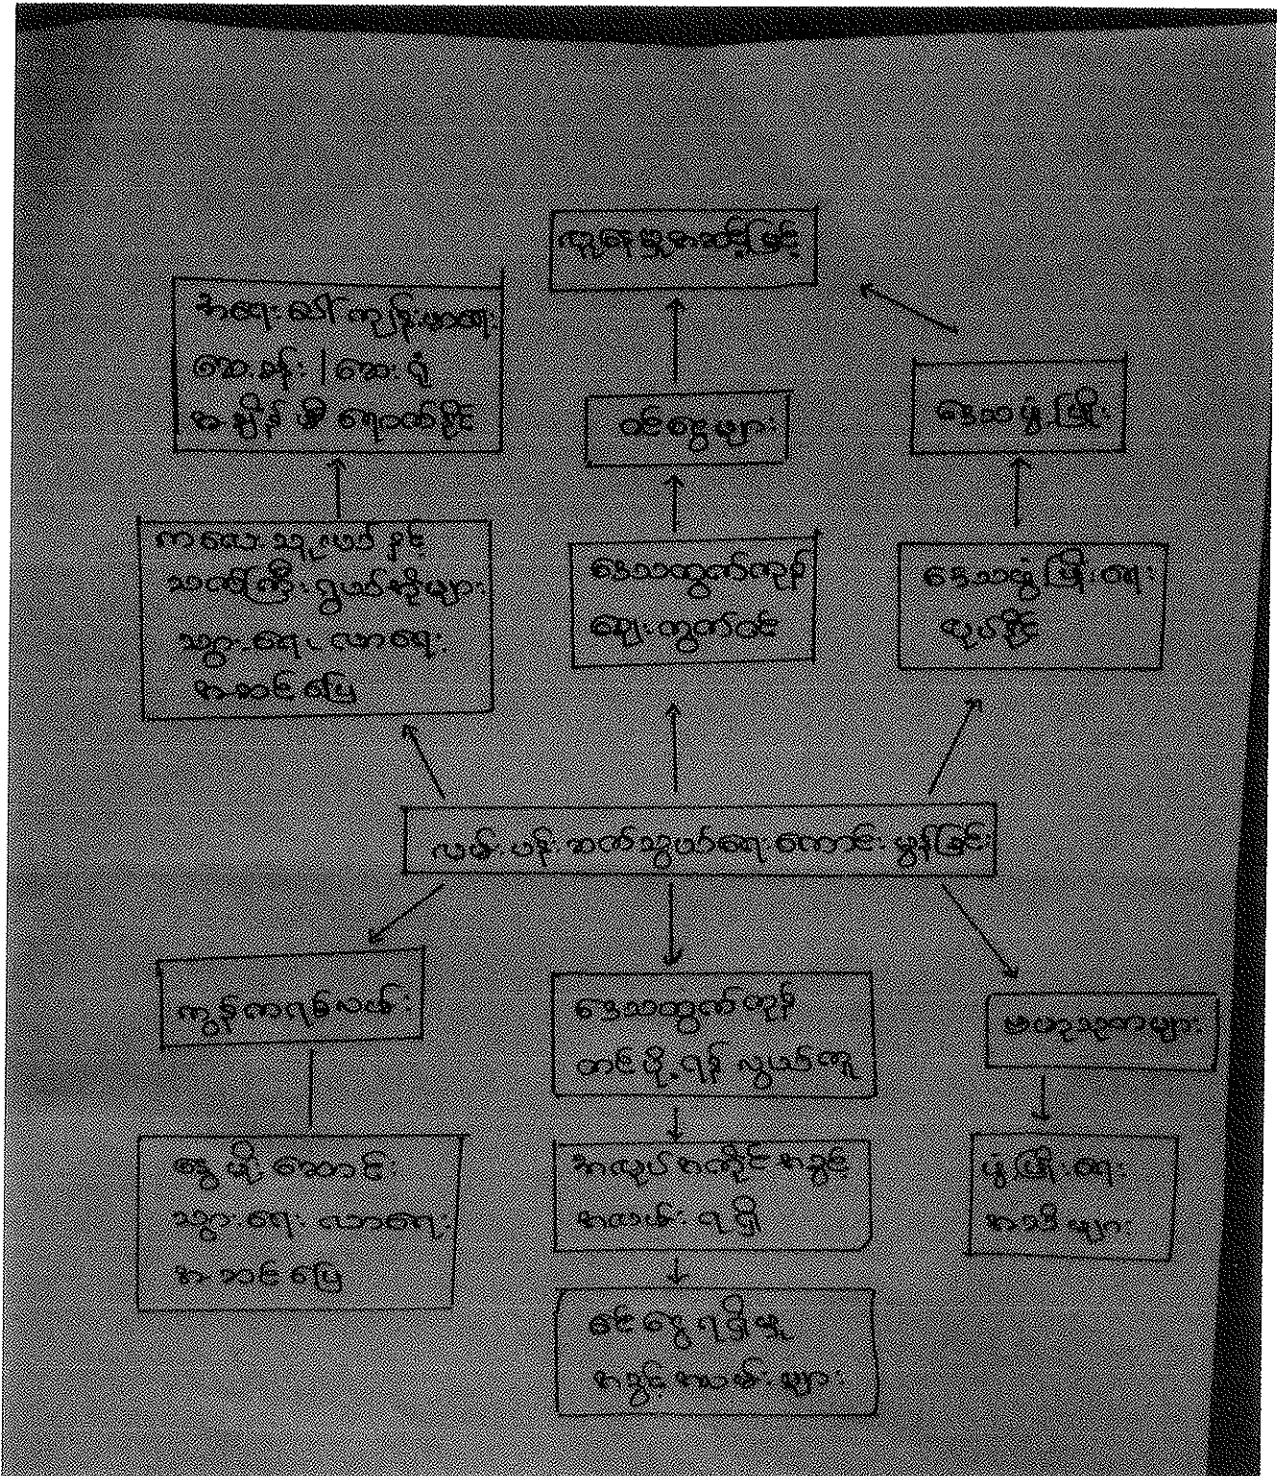 လူနေမှုအဆင့်မြင့်
အရေးပေါ်ကျန်းမာရေး
ဆေးခန်း | ဆေးရုံ
အချိန်မီ ရောက်နိုင်
ဝင်ငွေများ
ဒေသဖွံ့ဖြိုး
ကလေးသူငယ်နှင့်
သက်ကြီးရွယ်အိုများ
သွားရေးလာရေး
အဆင်ပြေ
ဒေသထွက်ကုန်
ဈေးကွက်ဝင်
ဒေသဖွံ့ဖြိုးရေး
လုပ်နိုင်
လမ်းပန်းဆက်သွယ်ရေး ကောင်းမွန်ခြင်း
ကွန်ကရစ်လမ်း
ဒေသထွက်ကုန်
တင်ပို့ရန် လွယ်ကူ
ဗဟုသုတများ
နွေမိုးဆောင်း
သွားရေးလာရေး
အဆင်ပြေ
အလုပ်အကိုင်အခွင့်
အလမ်းရရှိ
ဖွံ့ဖြိုးရေး
အသိများ
ဝင်ငွေရရှိမှု
အခွင့်အလမ်းများ